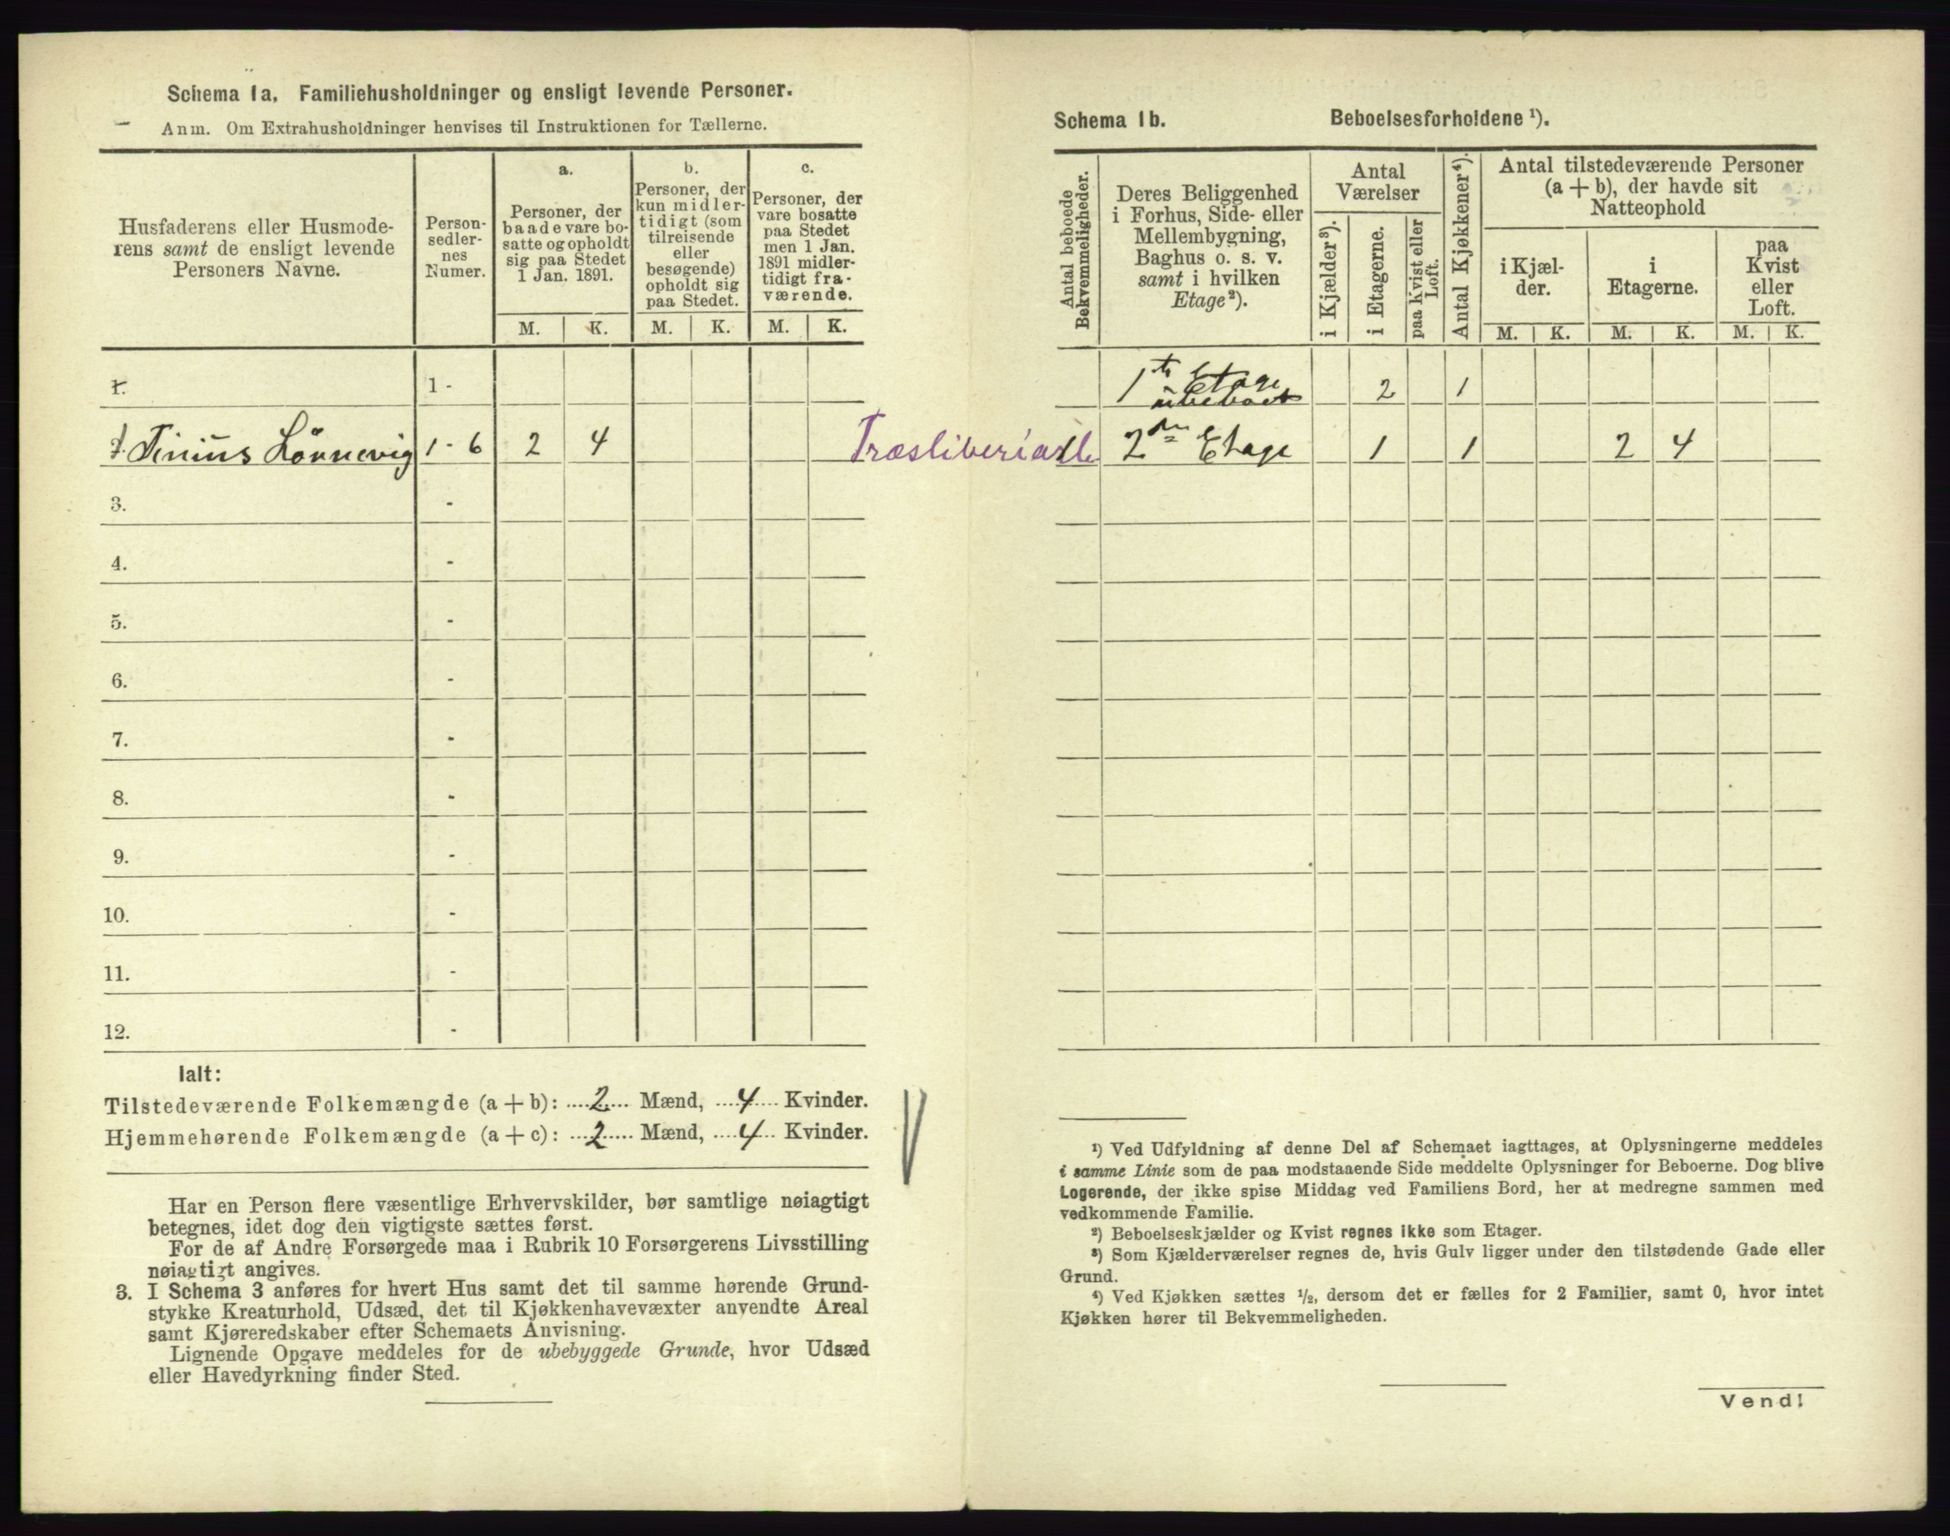 Schema 1a. Familiehusholdninger og ensligt levende Personer.
Anm. Om Extrahusholdninger henvises til Instruktionen for Tællerne.
Husfaderens eller Husmode-
rens samt de ensligt levende
Personers Navne.
Person-
sedler-
nes
Numer.
a.
Personer, der
baade vare bo-
satte og opholdt
sig paa Stedet
1 Jan. 1891.
b.
Personer, der
kun midler-
tidigt (som
tilreisende
eller
besøgende)
opholdt sig
paa Stedet.
c.
Personer, der
vare bosatte
paa Stedet
men 1 Jan.
1891 midler-
tidigt fra-
værende.
M. K. M. K. M. K.
1. 1 -
2. Tinius Lönnevig 1 - 6 2 4
3. -
4. -
5. -
6. -
7. -
8. -
9. -
10. -
11. -
12. -
Ialt:
Tilstedeværende Folkemængde (a + b): 2 Mænd, 4 Kvinder.
Hjemmehørende Folkemængde (a + c): 2 Mænd, 4 Kvinder.
Har en Person flere væsentlige Erhvervskilder, bør samtlige nøiagtigt
betegnes, idet dog den vigtigste sættes først.
For de af Andre Forsørgede maa i Rubrik 10 Forsørgerens Livsstilling
nøiagtigt angives.
3. I Schema 3 anføres for hvert Hus samt det til samme hørende Grund-
stykke Kreaturhold, Udsæd, det til Kjøkkenhavevæxter anvendte Areal
samt Kjøreredskaber efter Schemaets Anvisning.
Lignende Opgave meddeles for de ubebyggede Grunde, hvor Udsæd
eller Havedyrkning finder Sted.
Schema 1b. Beboelsesforholdene ¹).
Antal beboede
Bekvemmeligheder.
Deres Beliggenhed
i Forhus, Side- eller
Mellembygning,
Baghus o. s. v.
samt i hvilken
Etage²).
Antal
Værelser
i Kjælder³).
i Etagerne.
paa Kvist eller
Loft.
Antal Kjøkkener⁴).
Antal tilstedeværende Personer
(a + b), der havde sit
Natteophold
i Kjæl-
der.
i
Etagerne.
paa
Kvist
eller
Loft.
M. K. M. K. M. K.
1te Etage 2 1
ubeboet
2den Etage 1 1 2 4
¹) Ved Udfyldning af denne Del af Schemaet iagttages, at Oplysningerne meddeles
i samme Linie som de paa modstaaende Side meddelte Oplysninger for Beboerne. Dog blive
Logerende, der ikke spise Middag ved Familiens Bord, her at medregne sammen med
vedkommende Familie.
²) Beboelseskjælder og Kvist regnes ikke som Etager.
³) Som Kjælderværelser regnes de, hvis Gulv ligger under den tilstødende Gade eller
Grund.
⁴) Ved Kjøkken sættes ½, dersom det er fælles for 2 Familier, samt 0, hvor intet
Kjøkken hører til Bekvemmeligheden.
Vend!